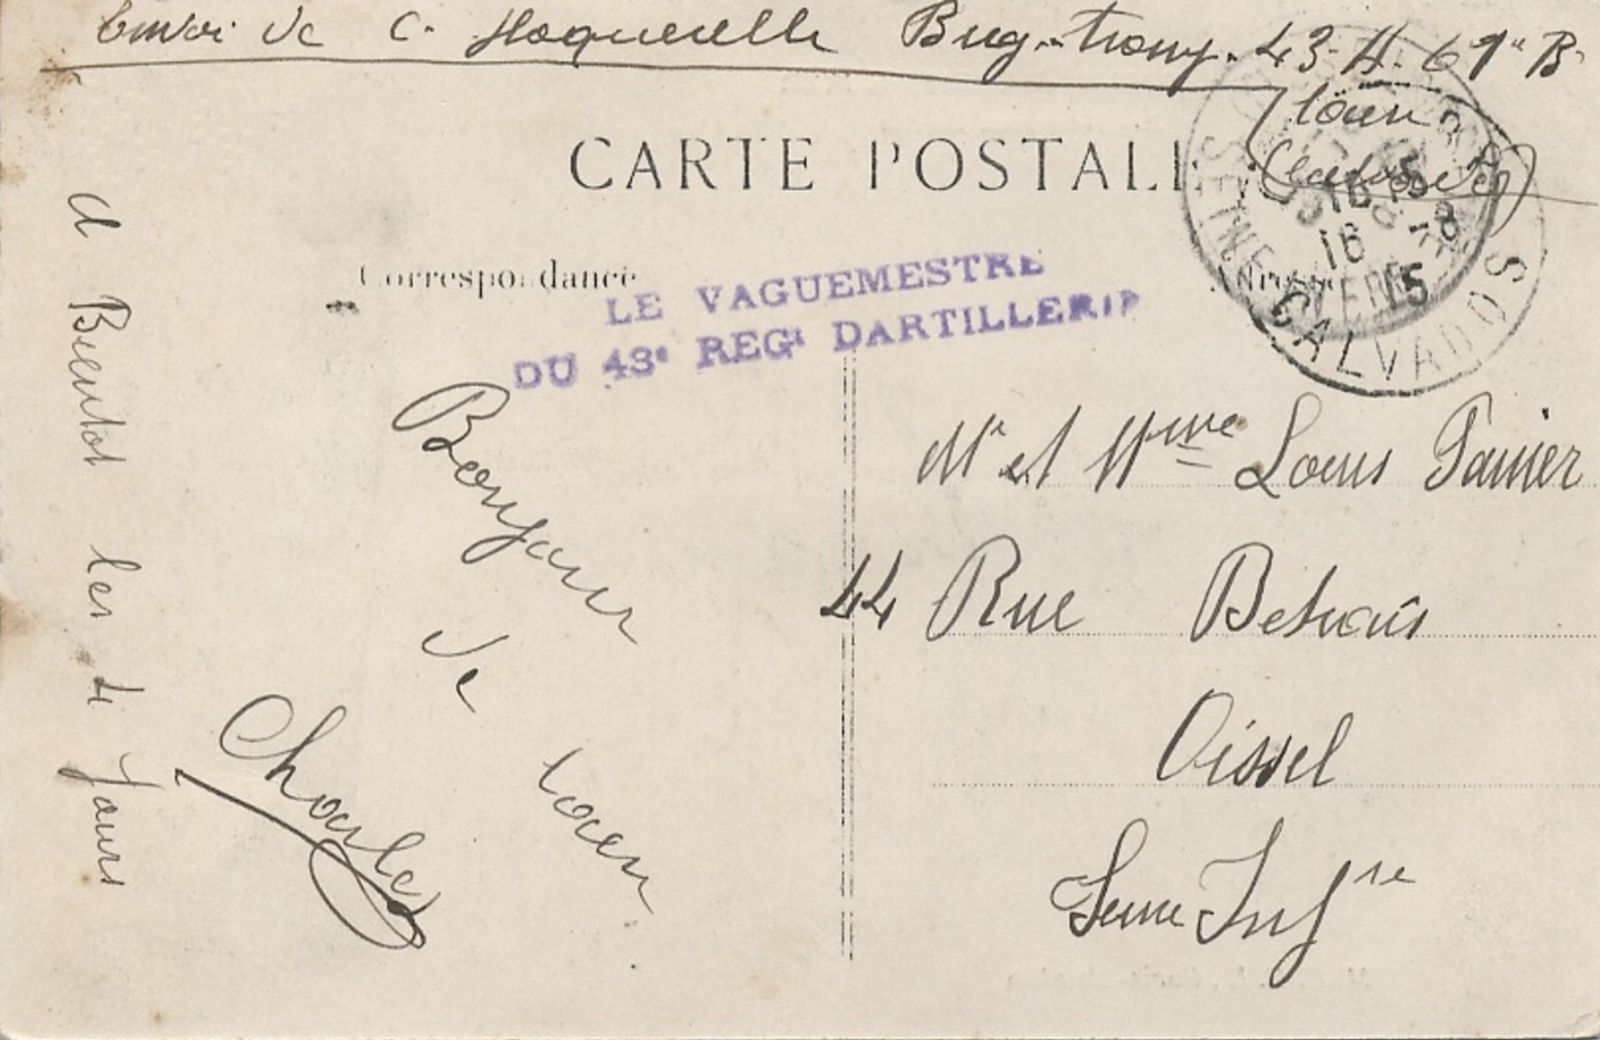 Envoi de C. Hoquerelle Brig. 43 A. 61e B.
Caen
Calvados
CARTE POSTALE
Correspondance
Adresse
LE VAGUEMESTRE
DU 43e REGt DARTILLERIE
16 -8
15
CALVADOS
SEINE
A Bientot les 4 jours
Bonjour
de
Caen
Charles
Mr et Mme Louis Panier
44 Rue
Oissel
Seine Infre